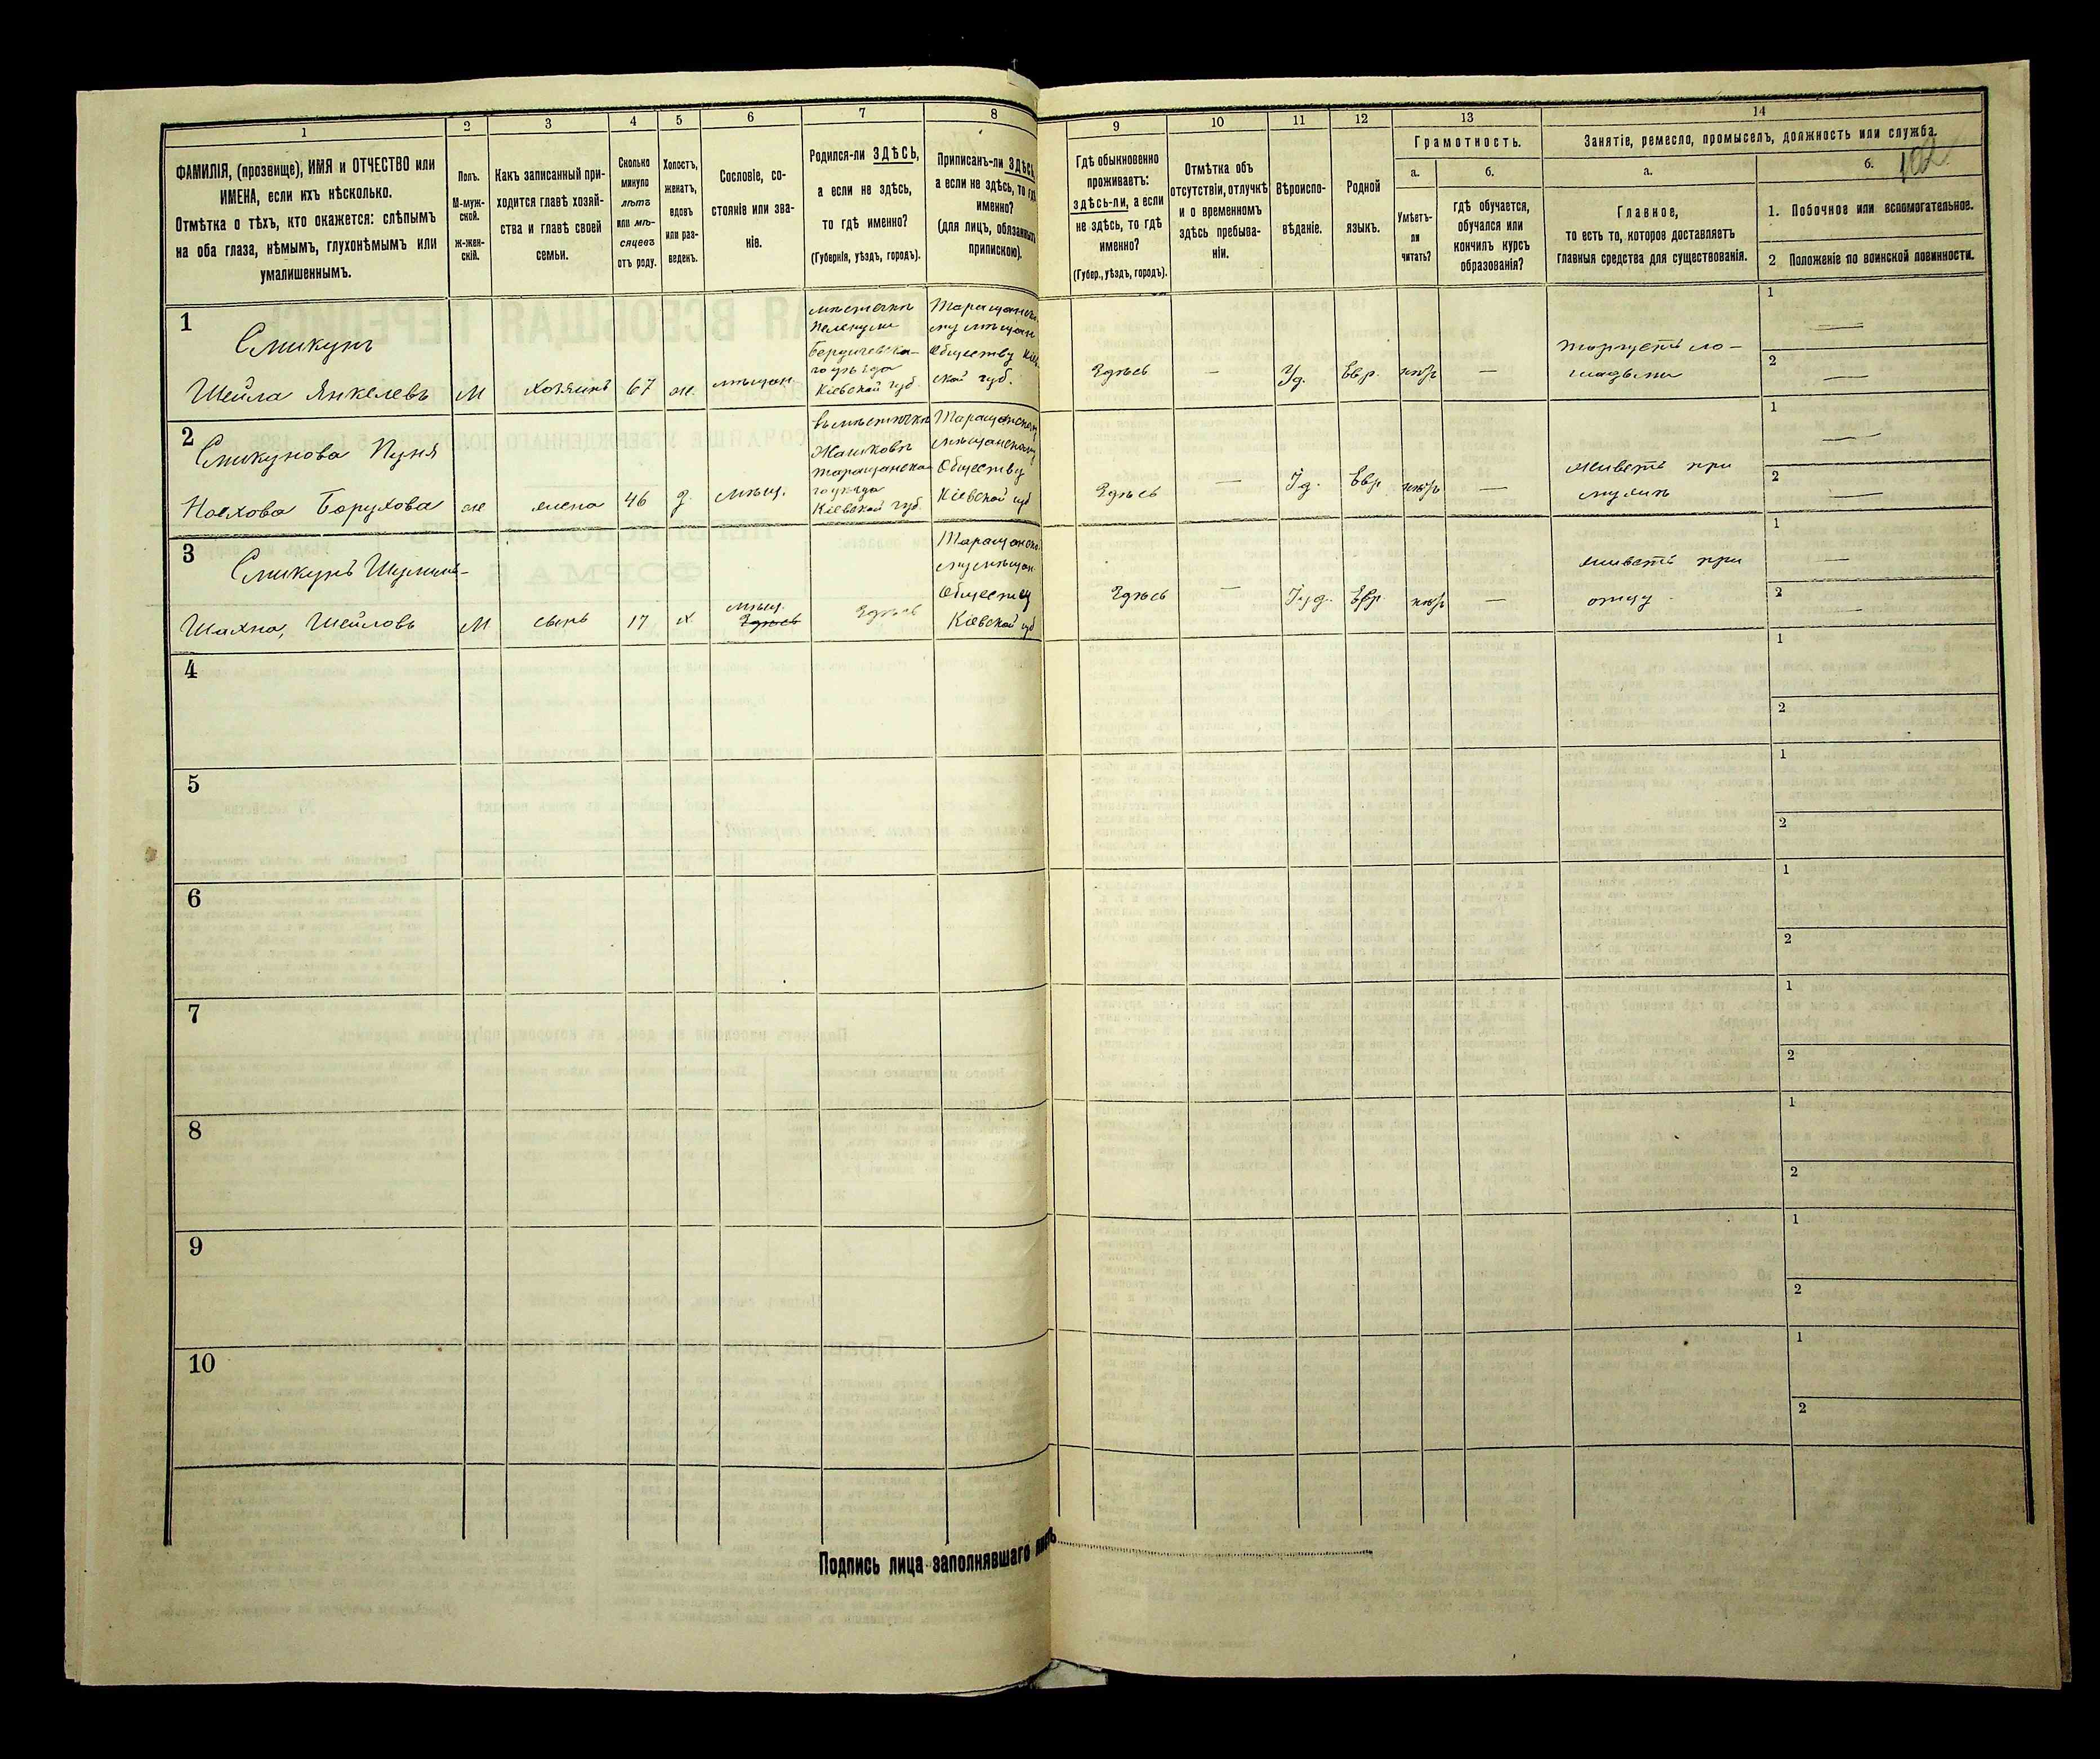 1
2
3
4
5
6
7
8
ФАМИЛІЯ, (прозвище), ИМЯ и ОТЧЕСТВО или
ИМЕНА, если ихъ нѣсколько.
Отмѣтка о тѣхъ, кто окажется: слѣпымъ
на оба глаза, нѣмымъ, глухонѣмымъ или
умалишеннымъ.
Полъ.
М-муж-
ской.
Ж-жен-
скій.
Какъ записанный при-
ходится главѣ хозяй-
ства и главѣ своей
семьи.
Сколько
минуло
лѣтъ
или мѣ-
сяцевъ
отъ роду.
Холостъ,
женатъ,
вдовъ
или раз-
веденъ.
Сословіе, со-
стояніе или зва-
ніе.
Родился-ли ЗДѢСЬ,
а если не здѣсь,
то гдѣ именно?
(Губернія, уѣздъ, городъ).
Приписанъ-ли ЗДѢСЬ,
а если не здѣсь, то гдѣ
именно?
(для лицъ, обязанныхъ
припискою).
9
10
11
12
13
14
Гдѣ обыкновенно
проживаетъ:
здѣсь-ли, а если
не здѣсь, то гдѣ
именно?
(Губер., уѣздъ, городъ).
Отмѣтка объ
отсутствіи, отлучкѣ
и о временномъ
здѣсь пребыва-
ніи.
Вѣроиспо-
вѣданіе.
Родной
языкъ.
Грамотность.
а.
Умѣетъ-
ли
читать?
б.
гдѣ обучается,
обучался или
кончилъ курсъ
образованія?
Занятіе, ремесло, промыселъ, должность или служба.
а.
Главное,
то есть то, которое доставляетъ
главныя средства для существованія.
б.
102
1. Побочное или вспомогательное.
2 Положеніе по воинской повинности.
1
Сликунъ
Шейла Янкелевъ
М
хозяинъ
67
ж.
мѣщан
Бердичевска-
го уѣзда
Кіевской губ.
Таращанск.
му мѣщан
Обществу Кіев.
ской губ.
Здѣсь
—
Уд.
Евр.
нѣтъ
—
торгуетъ ло-
шадьми
1
—
2
—
2
Сликунова Пуня
Ноехова Борухова
ж
жена
46
з.
мѣщ.
въ мѣстечкѣ
Жашковъ
Таращанска
го уѣзда
Кіевской губ.
Таращанскому
мѣщанскому
Обществу
Кіевской губ
Здѣсь
—
Іуд.
Евр
нѣтъ
—
живетъ при
мужѣ
1
—
2
—
3
Сликунъ
Шахна, Шейловъ
М
сынъ
17
х
мѣщ.
Здѣсь
Здѣсь
Таращанско.
му мѣщан
Обществу
Кіевской губ
Здѣсь
—
Іуд.
Евр.
нѣтъ
—
живетъ при
отцу
1
—
2
—
4
1
2
5
1
2
6
1
2
7
1
2
8
1
2
9
1
2
10
1
2
Подпись лица заполнявшаго листъ